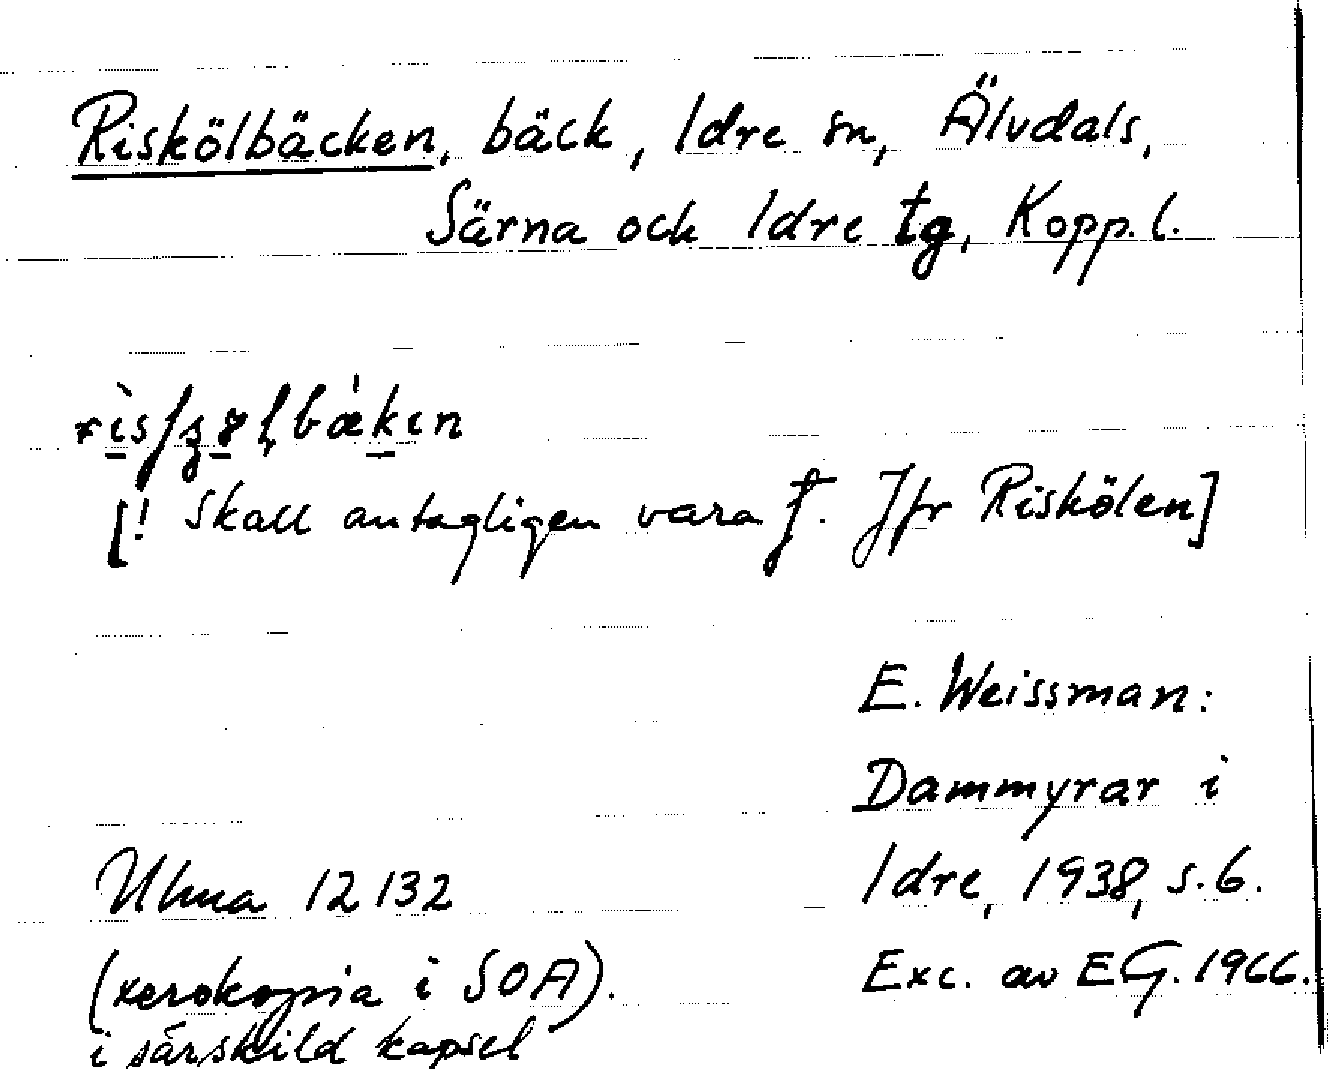 Riskölbäcken, bäck, Idre sn, Älvdals,
Särna och Idre tg, Kopp. l.
[! Skall antagligen vara f. Jfr Riskölen]
E. Weissman:
Dammyrar i
Idre, 1938, s. 6.
Exc. av EG. 1966.
Ulma 12132
(xerokopia i SOA).
i särskild kapsel